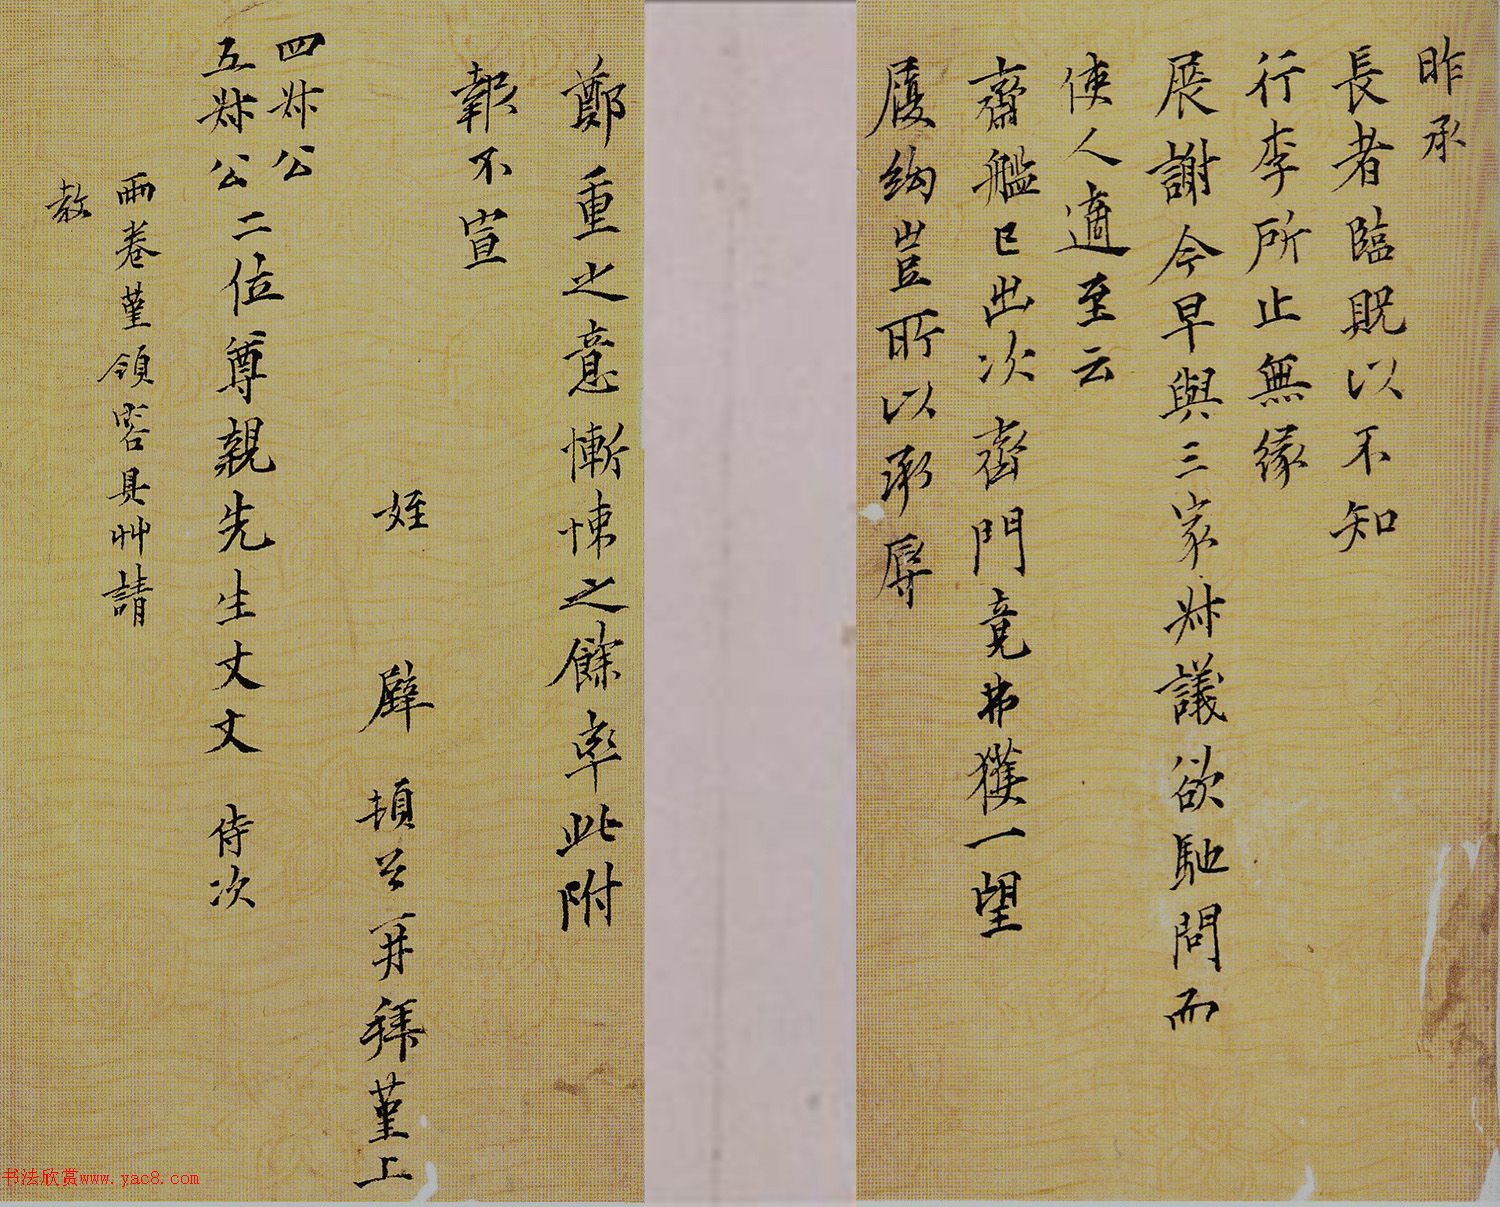 昨承
長者臨貺以不知
行李所止無緣
展謝今早與三家叔議欲馳問而
使人適至云
齋艦已出次齊門竟弗獲一望
履絇豈所以承辱
鄭重之意慚悚之餘率此附
報不宣
姪 璧 頓首再拜堇上
四叔公
五叔公二位尊親先生丈丈 侍次
兩卷堇領容具艸請
教
书法欣赏www.yac8.com